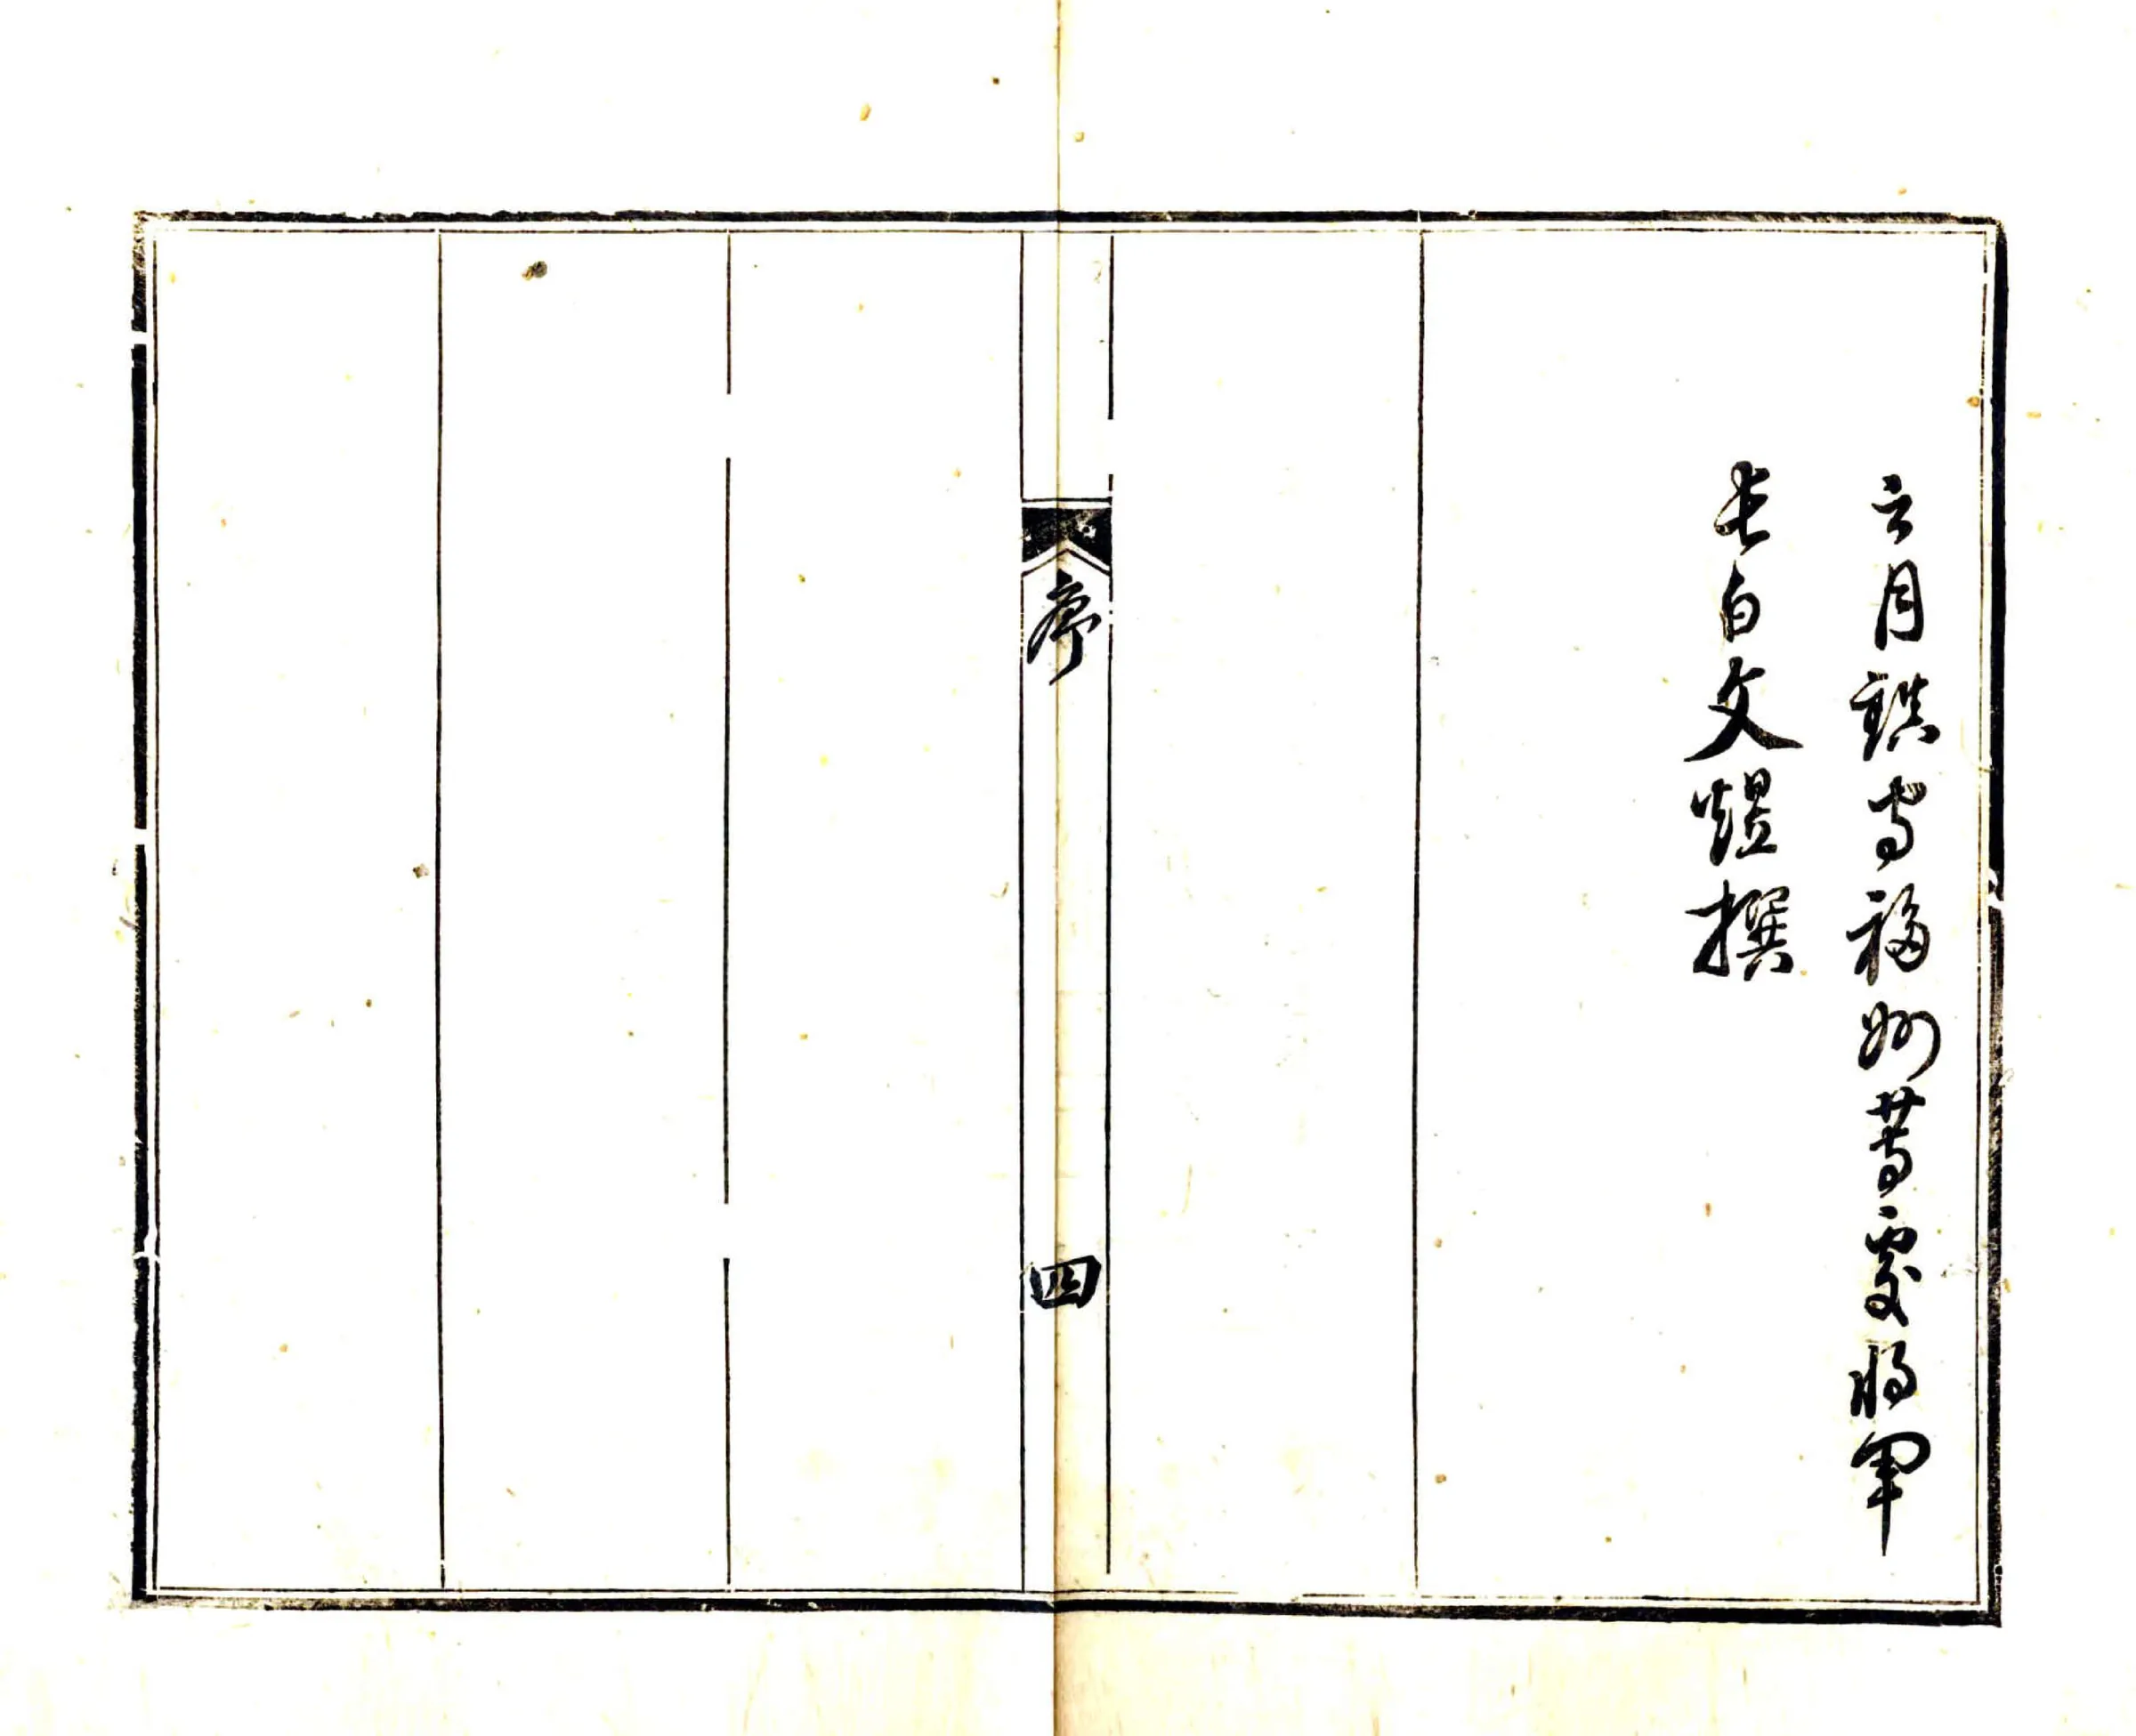 六月鎮守福州等處將軍
長白文煜撰
序
四